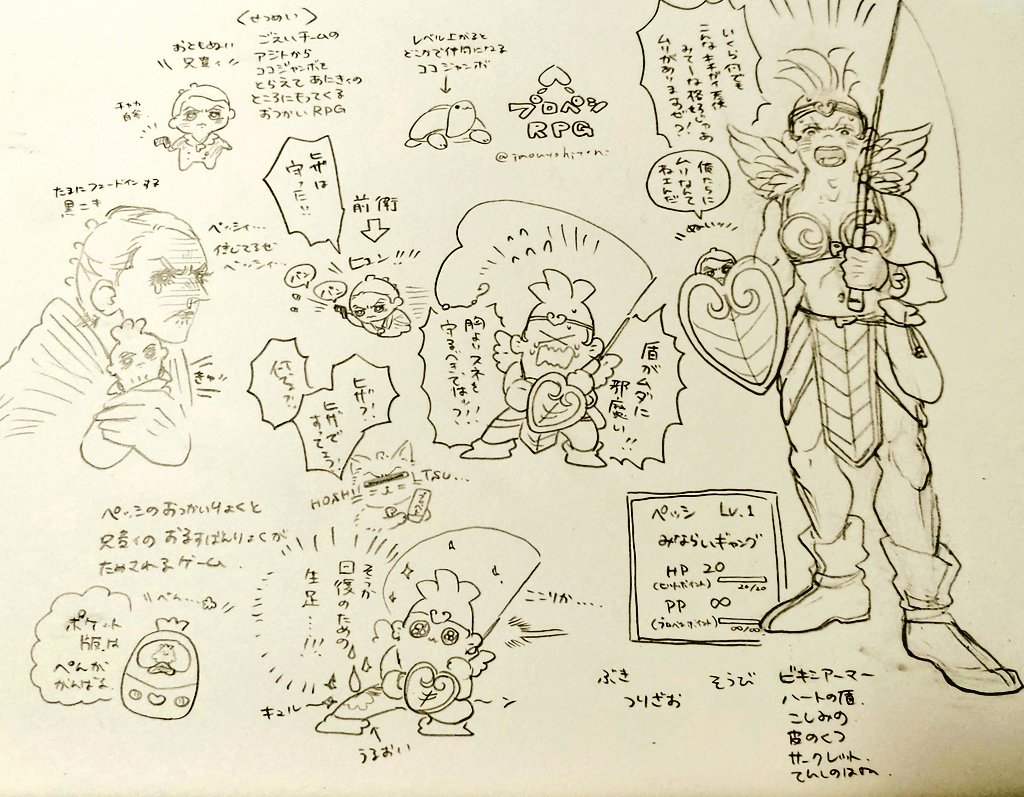 〈せつめい〉
ごえいチームの
アジトから
ココジャンボを
とらえて あにきィの
ところにもってくる
おつかいRPG
おともぬい
兄貴ィ
チャカ
自分
レベル上がると
どこかで仲間になる
ココジャンボ
プロペシ
RPG
いくら何でも
こんなキチガイ天使
みてーな格好じゃあ
ムリがありますぜ?!
俺たちに
ムリなんて
ねェんだ
ぬいッ
ヒザは
守った!!
前衛
ヒュン!!!
パン
パン
たまにフェードインする
黒ニキ
ペッシィ…
信じてるぜ
ペッシィ…
きゅ
胸よりスネを
守るべきではッ?!!
盾がムダに
邪魔い!!
何ろう?
ヒザ?!
ヒザで
すってろ!
HOSHI
TSU...
ペッシのおつかいりょくと
兄貴ィのおるすばんりょくが
ためされるゲーム
ぺん…
ポケット
版は
ぺんが
がんばる
そうか
回復のための
生足…!!!
ここりか....
キュルーン
うるおい
ペッシ Lv.1
みならいギャング
HP 20
(ヒットポイント)
20/20
PP ∞
(プロペシポイント)
∞/∞
ぶき
つりざお
そうび
ビキニアーマー
ハートの盾
こしみの
皮のくつ
サークレット
てんしのはね